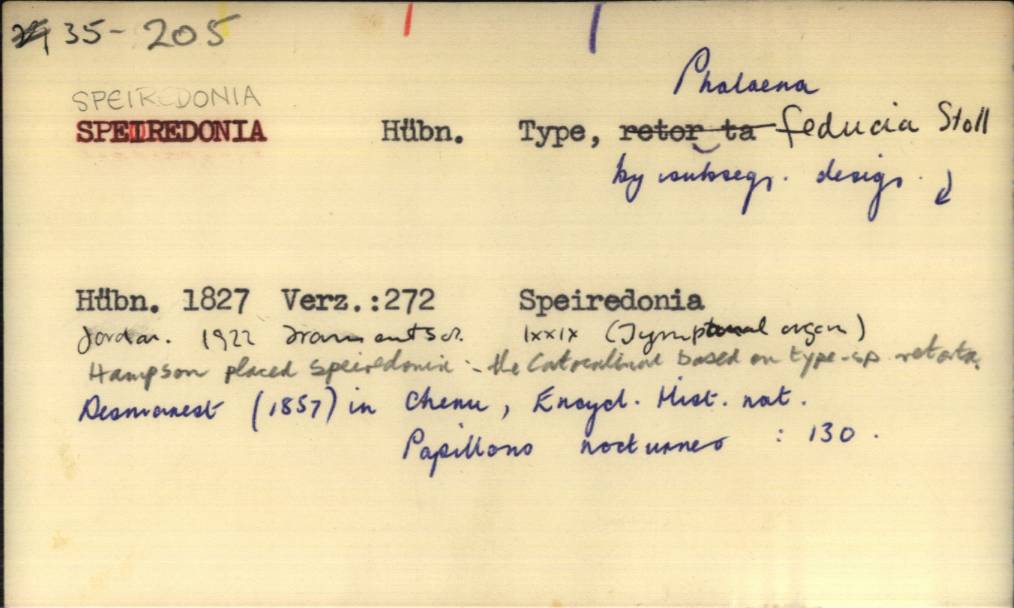 35-205
SPEIREDONIA
Phalaena
SPEIREDONIA Hübn. Type, retorta feducia Stoll
by subseq. desig.
Hübn. 1827 Verz.:272 Speiredonia
Jordan. 1922 lxxix (Tymptanal organ)
Hampson placed Speiredonia - the Catocalinae based on type-sp retorta.
Desmarest (1857) in Chenu, Encycl. Hist. nat.
Papillons nocturnes : 130.